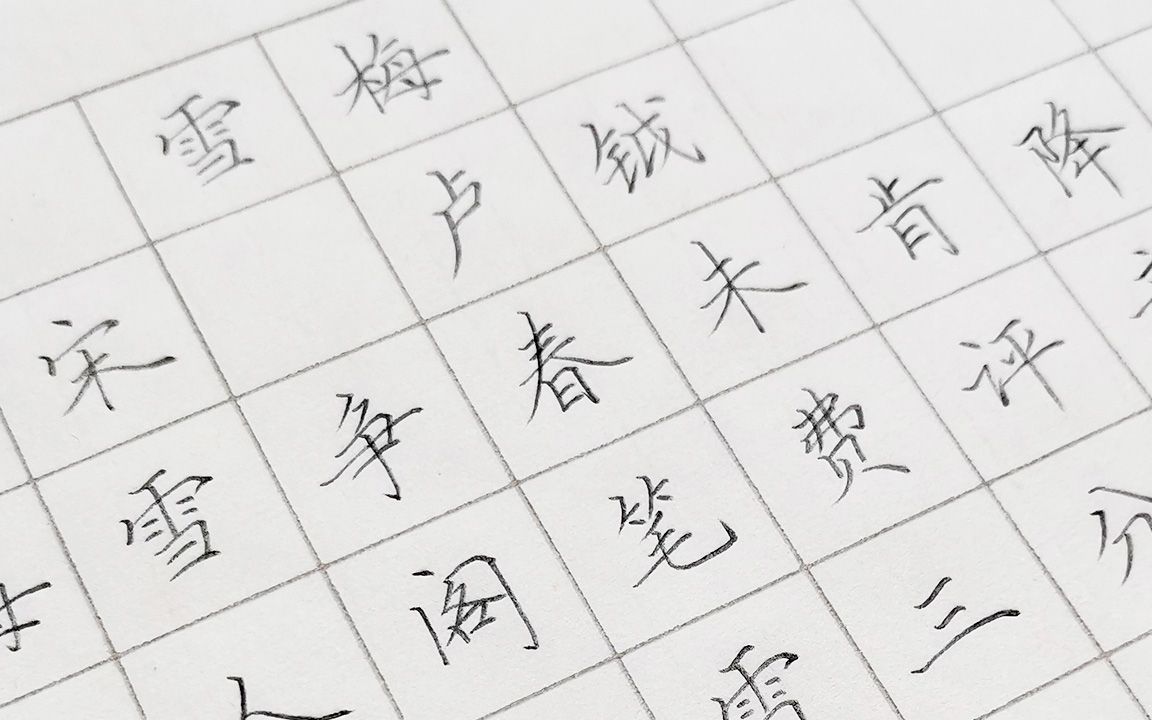 雪梅
宋 卢钺
雪争春未肯降
人阁笔费评
雪三分